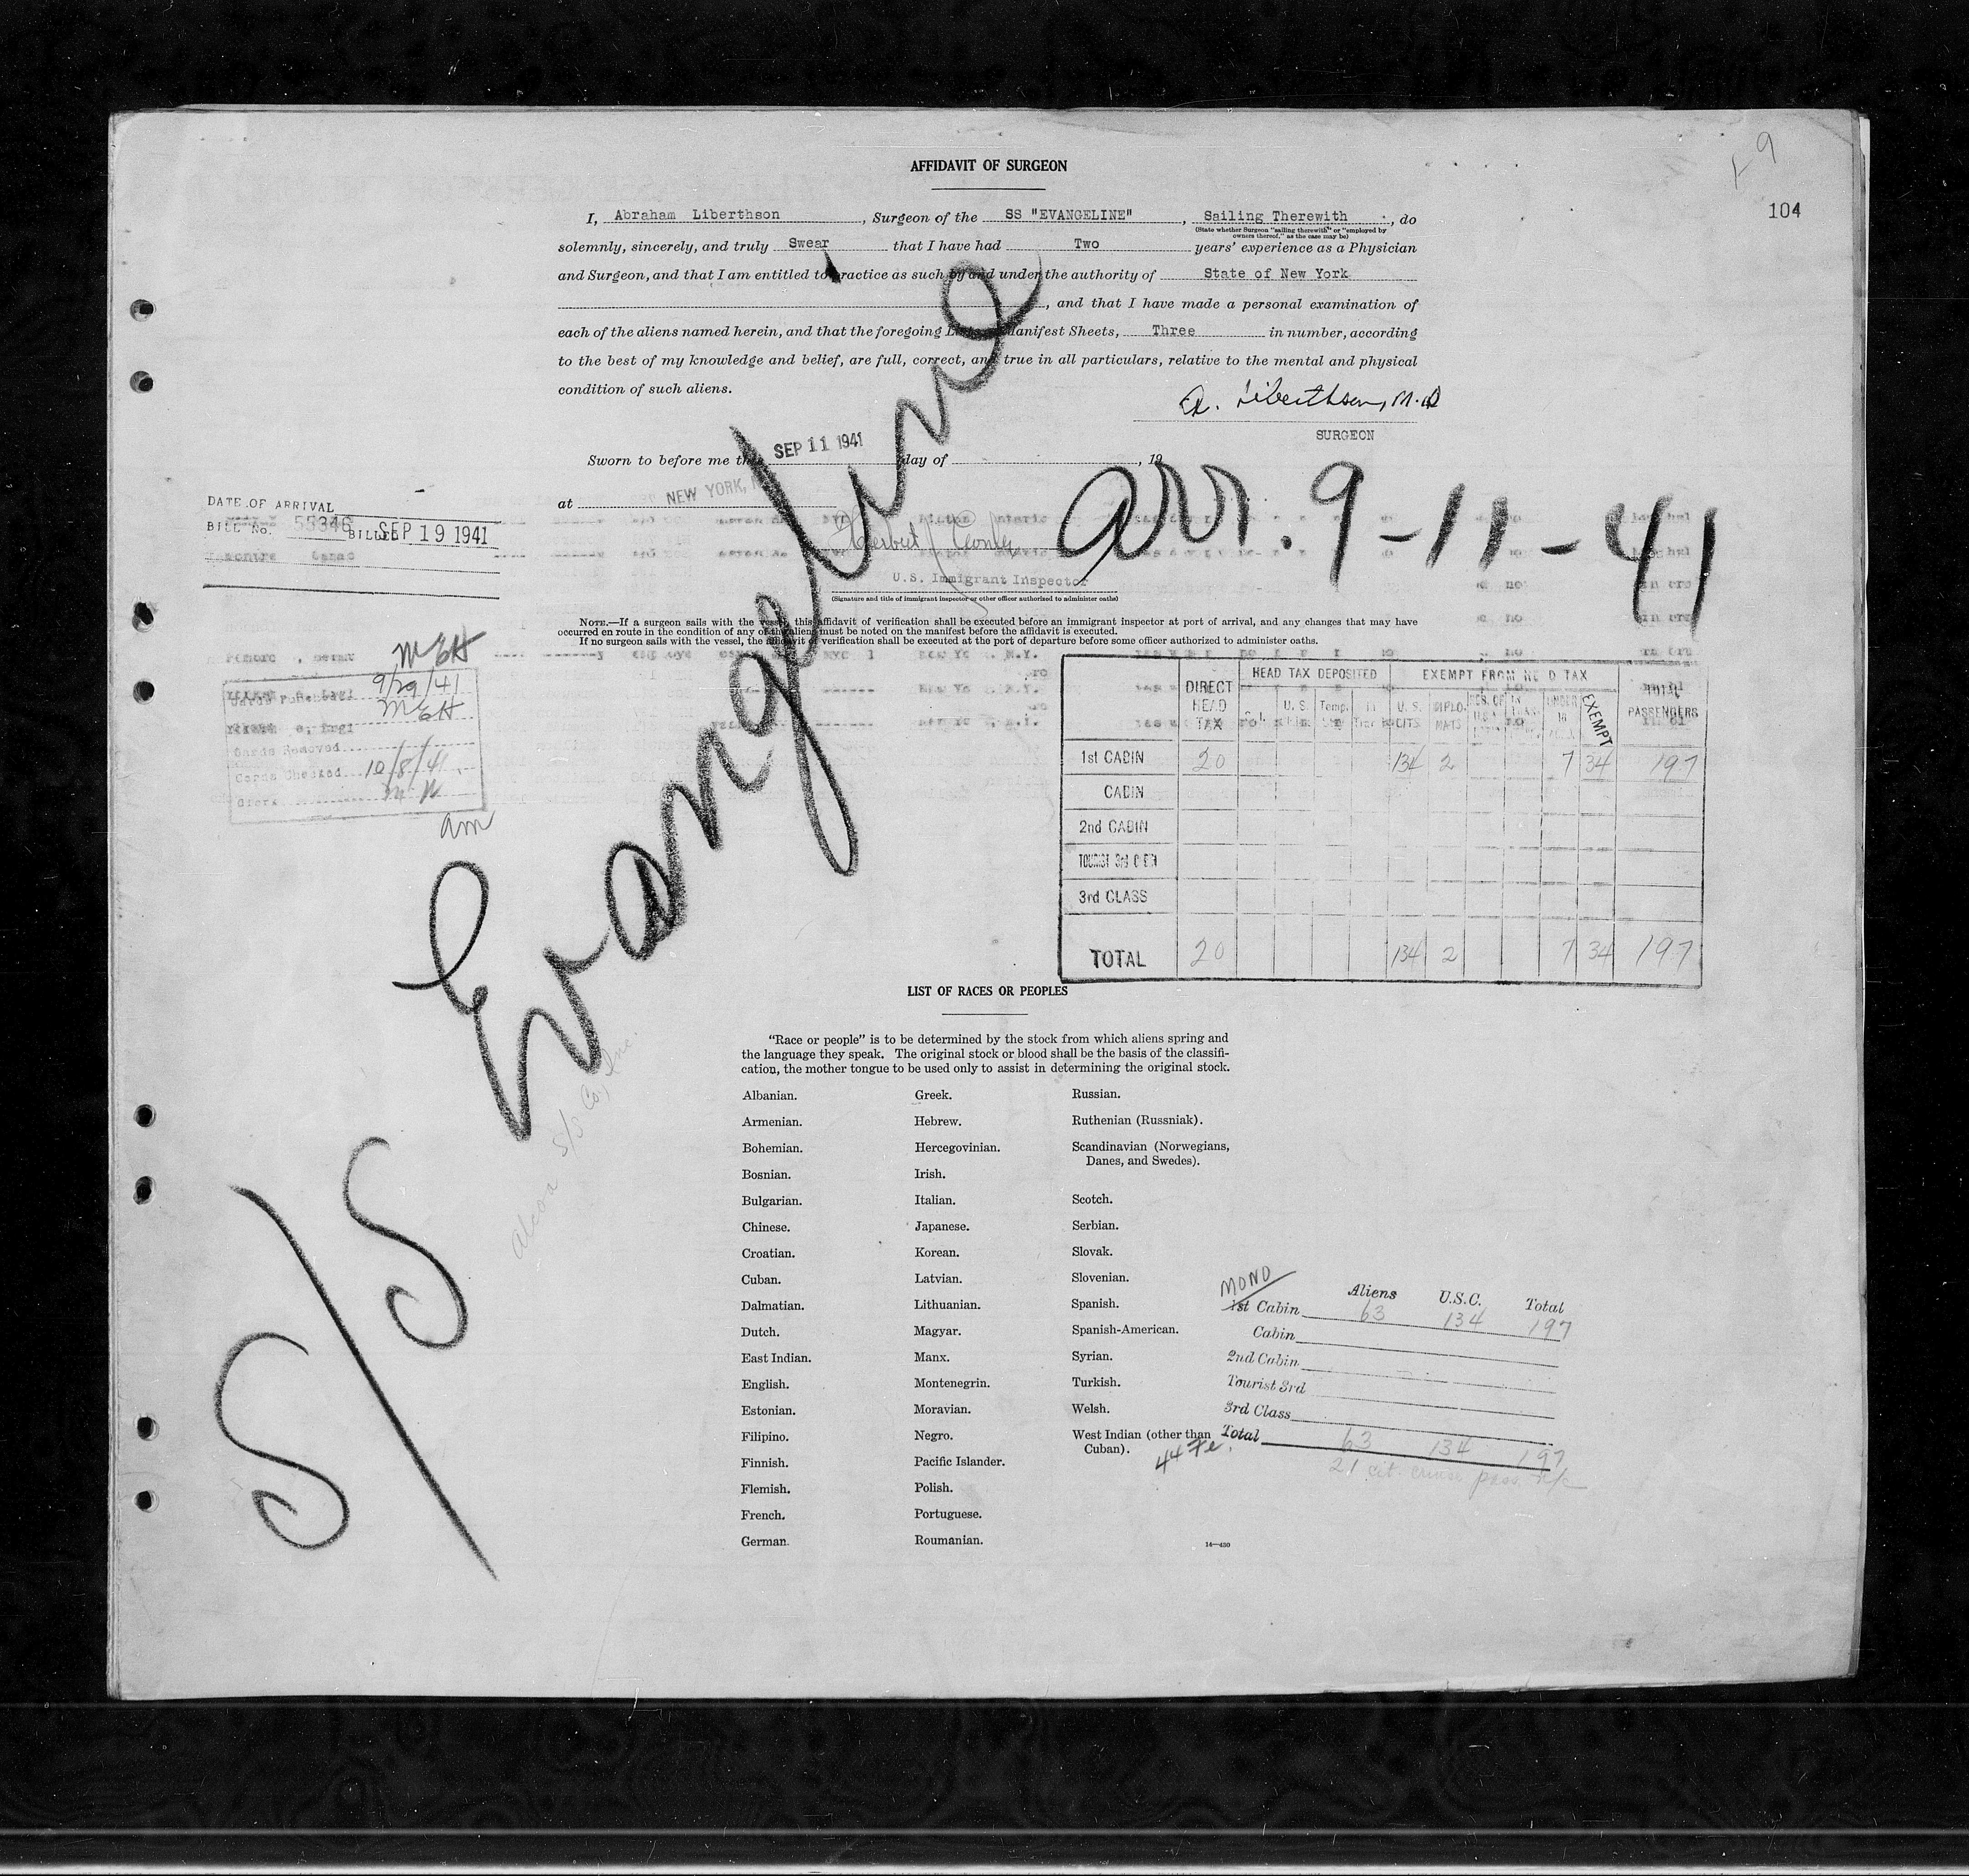 AFFIDAVIT OF SURGEON
1-9
104
I, Abraham Liberthson, Surgeon of the SS "EVANGELINE", Sailing Therewith, do
(State whether Surgeon "sailing therewith" or "employed by
owners thereof," as the case may be)
solemnly, sincerely, and truly Swear that I have had Two years' experience as a Physician
and Surgeon, and that I am entitled to practice as such by and under the authority of State of New York
, and that I have made a personal examination of
each of the aliens named herein, and that the foregoing Manifest Sheets, Three in number, according
to the best of my knowledge and belief, are full, correct, and true in all particulars, relative to the mental and physical
condition of such aliens.
A. Liberthson, M.D
SURGEON
Sworn to before me this SEP 11 1941 day of , 19
at NEW YORK, N
Herbert
U.S. Immigrant Inspector
(Signature and title of immigrant inspector or other officer authorized to administer oaths)
arr. 9-11-41
DATE OF ARRIVAL
BILL No. 55346 BILLED SEP 19 1941
NOTE.—If a surgeon sails with the vessel, this affidavit of verification shall be executed before an immigrant inspector at port of arrival, and any changes that may have
occurred en route in the condition of any of the aliens must be noted on the manifest before the affidavit is executed.
If no surgeon sails with the vessel, the affidavit of verification shall be executed at the port of departure before some officer authorized to administer oaths.
MEH
Cards Punched 9/29/41
MEH
Cards Removed
Cards Checked 10/8/41
Clerk
am
DIRECT HEAD TAX
HEAD TAX DEPOSITED
EXEMPT FROM HEAD TAX
U.S. Temp. U.S. CITS. DIPLOMATS UNDER 16 EXEMPT
TOTAL PASSENGERS
1st CABIN 20 134 2 7 34 197
CABIN
2nd CABIN
TOURIST 3rd CABIN
3rd CLASS
TOTAL 20 134 2 7 34 197
S/S Evangeline
Alcoa S/S Co., Inc.
LIST OF RACES OR PEOPLES
"Race or people" is to be determined by the stock from which aliens spring and
the language they speak. The original stock or blood shall be the basis of the classifi-
cation, the mother tongue to be used only to assist in determining the original stock.
Albanian.
Armenian.
Bohemian.
Bosnian.
Bulgarian.
Chinese.
Croatian.
Cuban.
Dalmatian.
Dutch.
East Indian.
English.
Estonian.
Filipino.
Finnish.
Flemish.
French.
German.
Greek.
Hebrew.
Hercegovinian.
Irish.
Italian.
Japanese.
Korean.
Latvian.
Lithuanian.
Magyar.
Manx.
Montenegrin.
Moravian.
Negro.
Pacific Islander.
Polish.
Portuguese.
Roumanian.
Russian.
Ruthenian (Russniak).
Scandinavian (Norwegians,
Danes, and Swedes).
Scotch.
Serbian.
Slovak.
Slovenian.
Spanish.
Spanish-American.
Syrian.
Turkish.
Welsh.
West Indian (other than
Cuban).
44 Fe.
MONO
Aliens U.S.C. Total
1st Cabin 63 134 197
Cabin
2nd Cabin
Tourist 3rd
3rd Class
Total 63 134 197
21 cit. cruise pass.
14—430